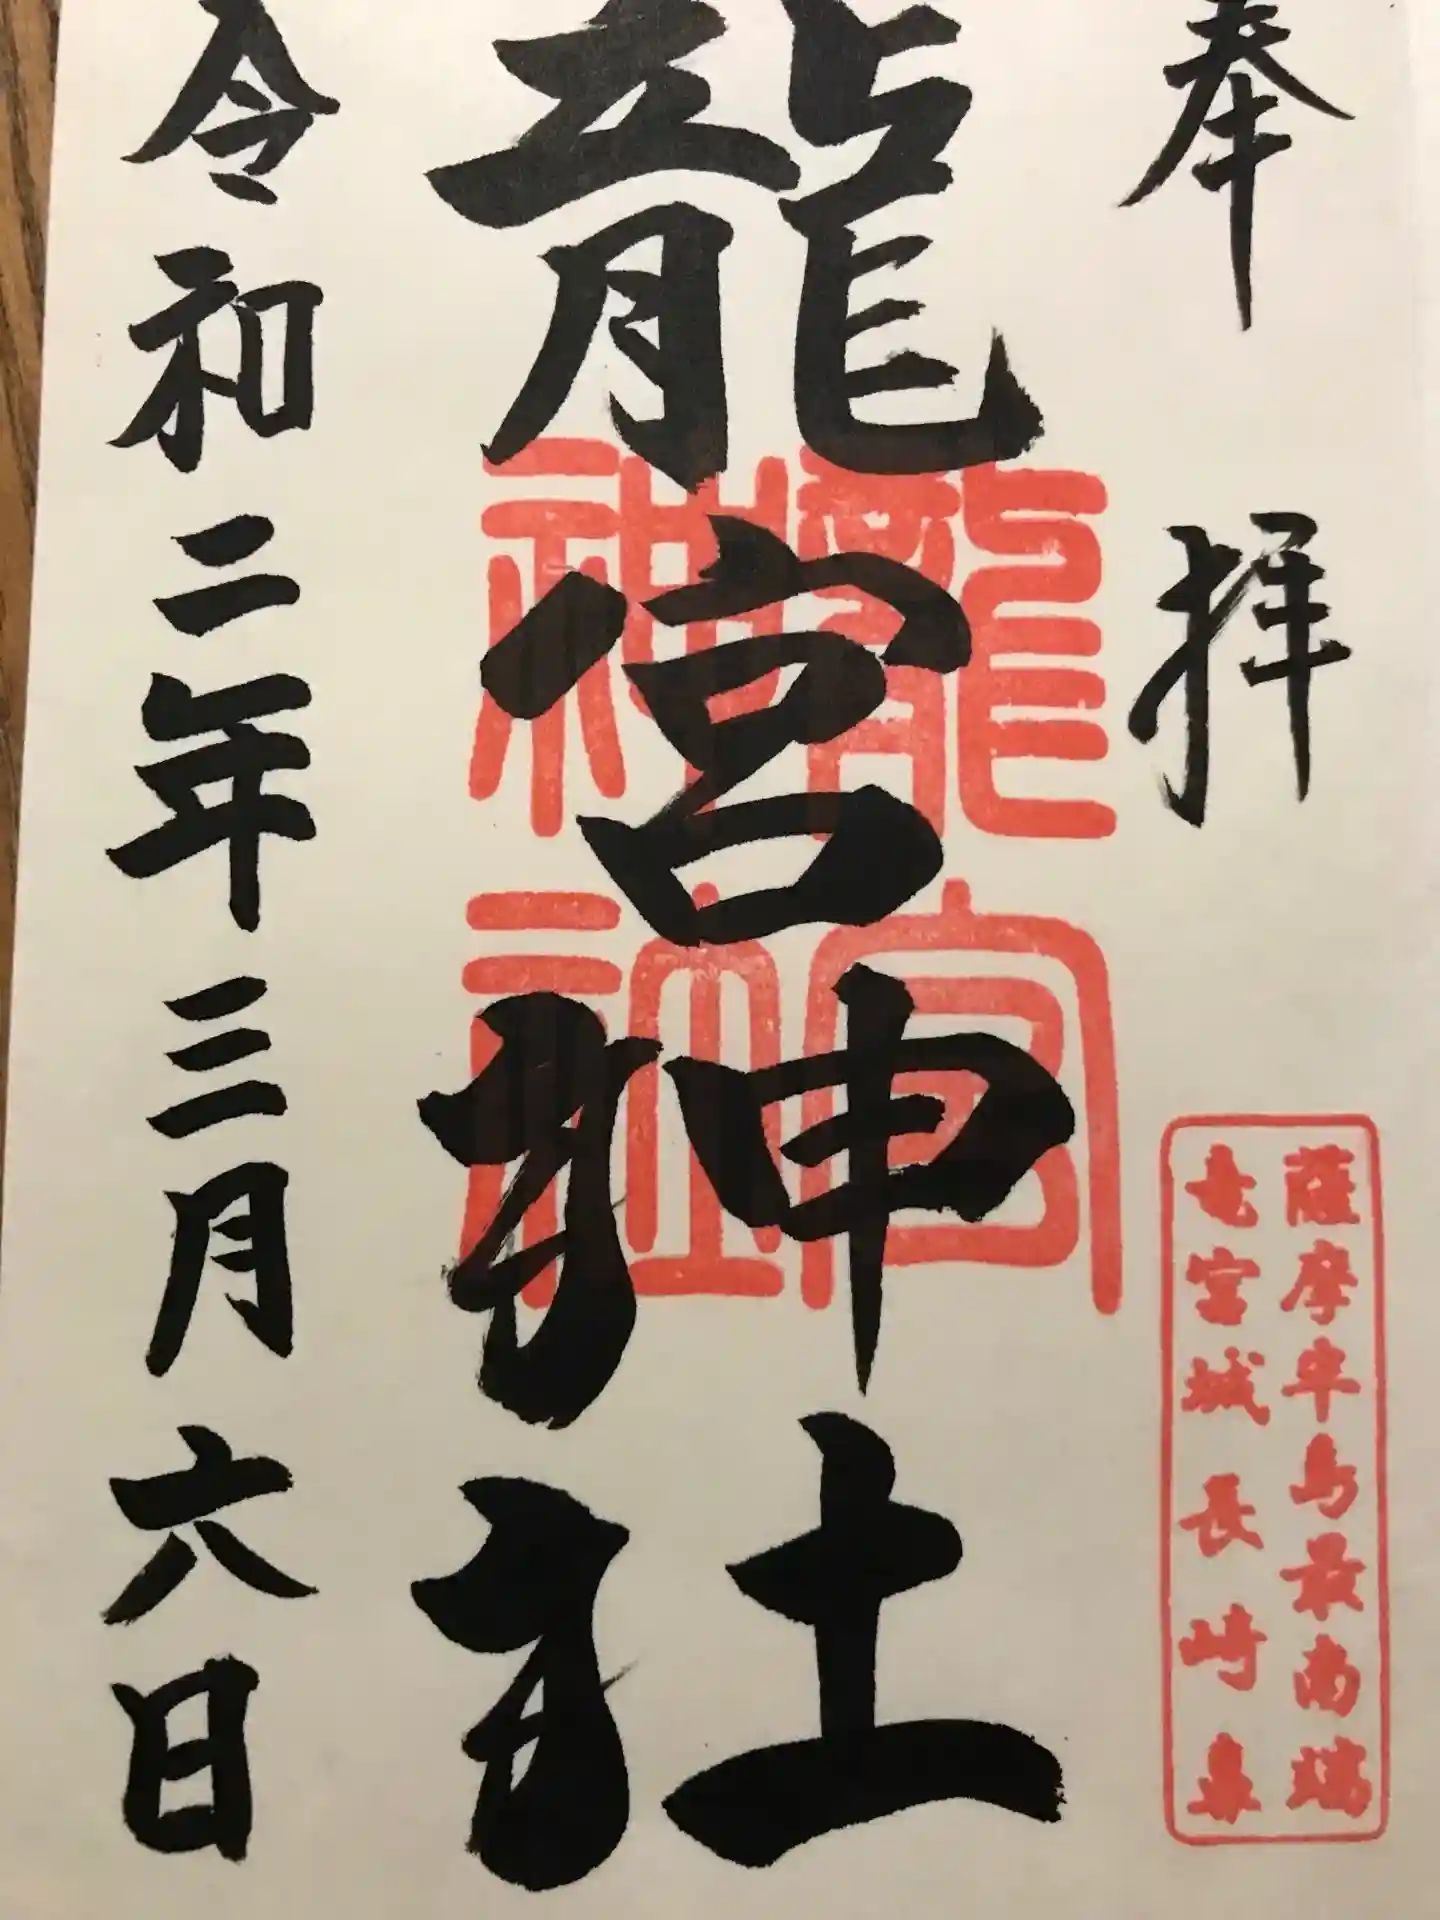 奉拝
薩摩半島最南端
竜宮城長崎鼻
龍宮神社
龍宮
神社
令和二年三月六日